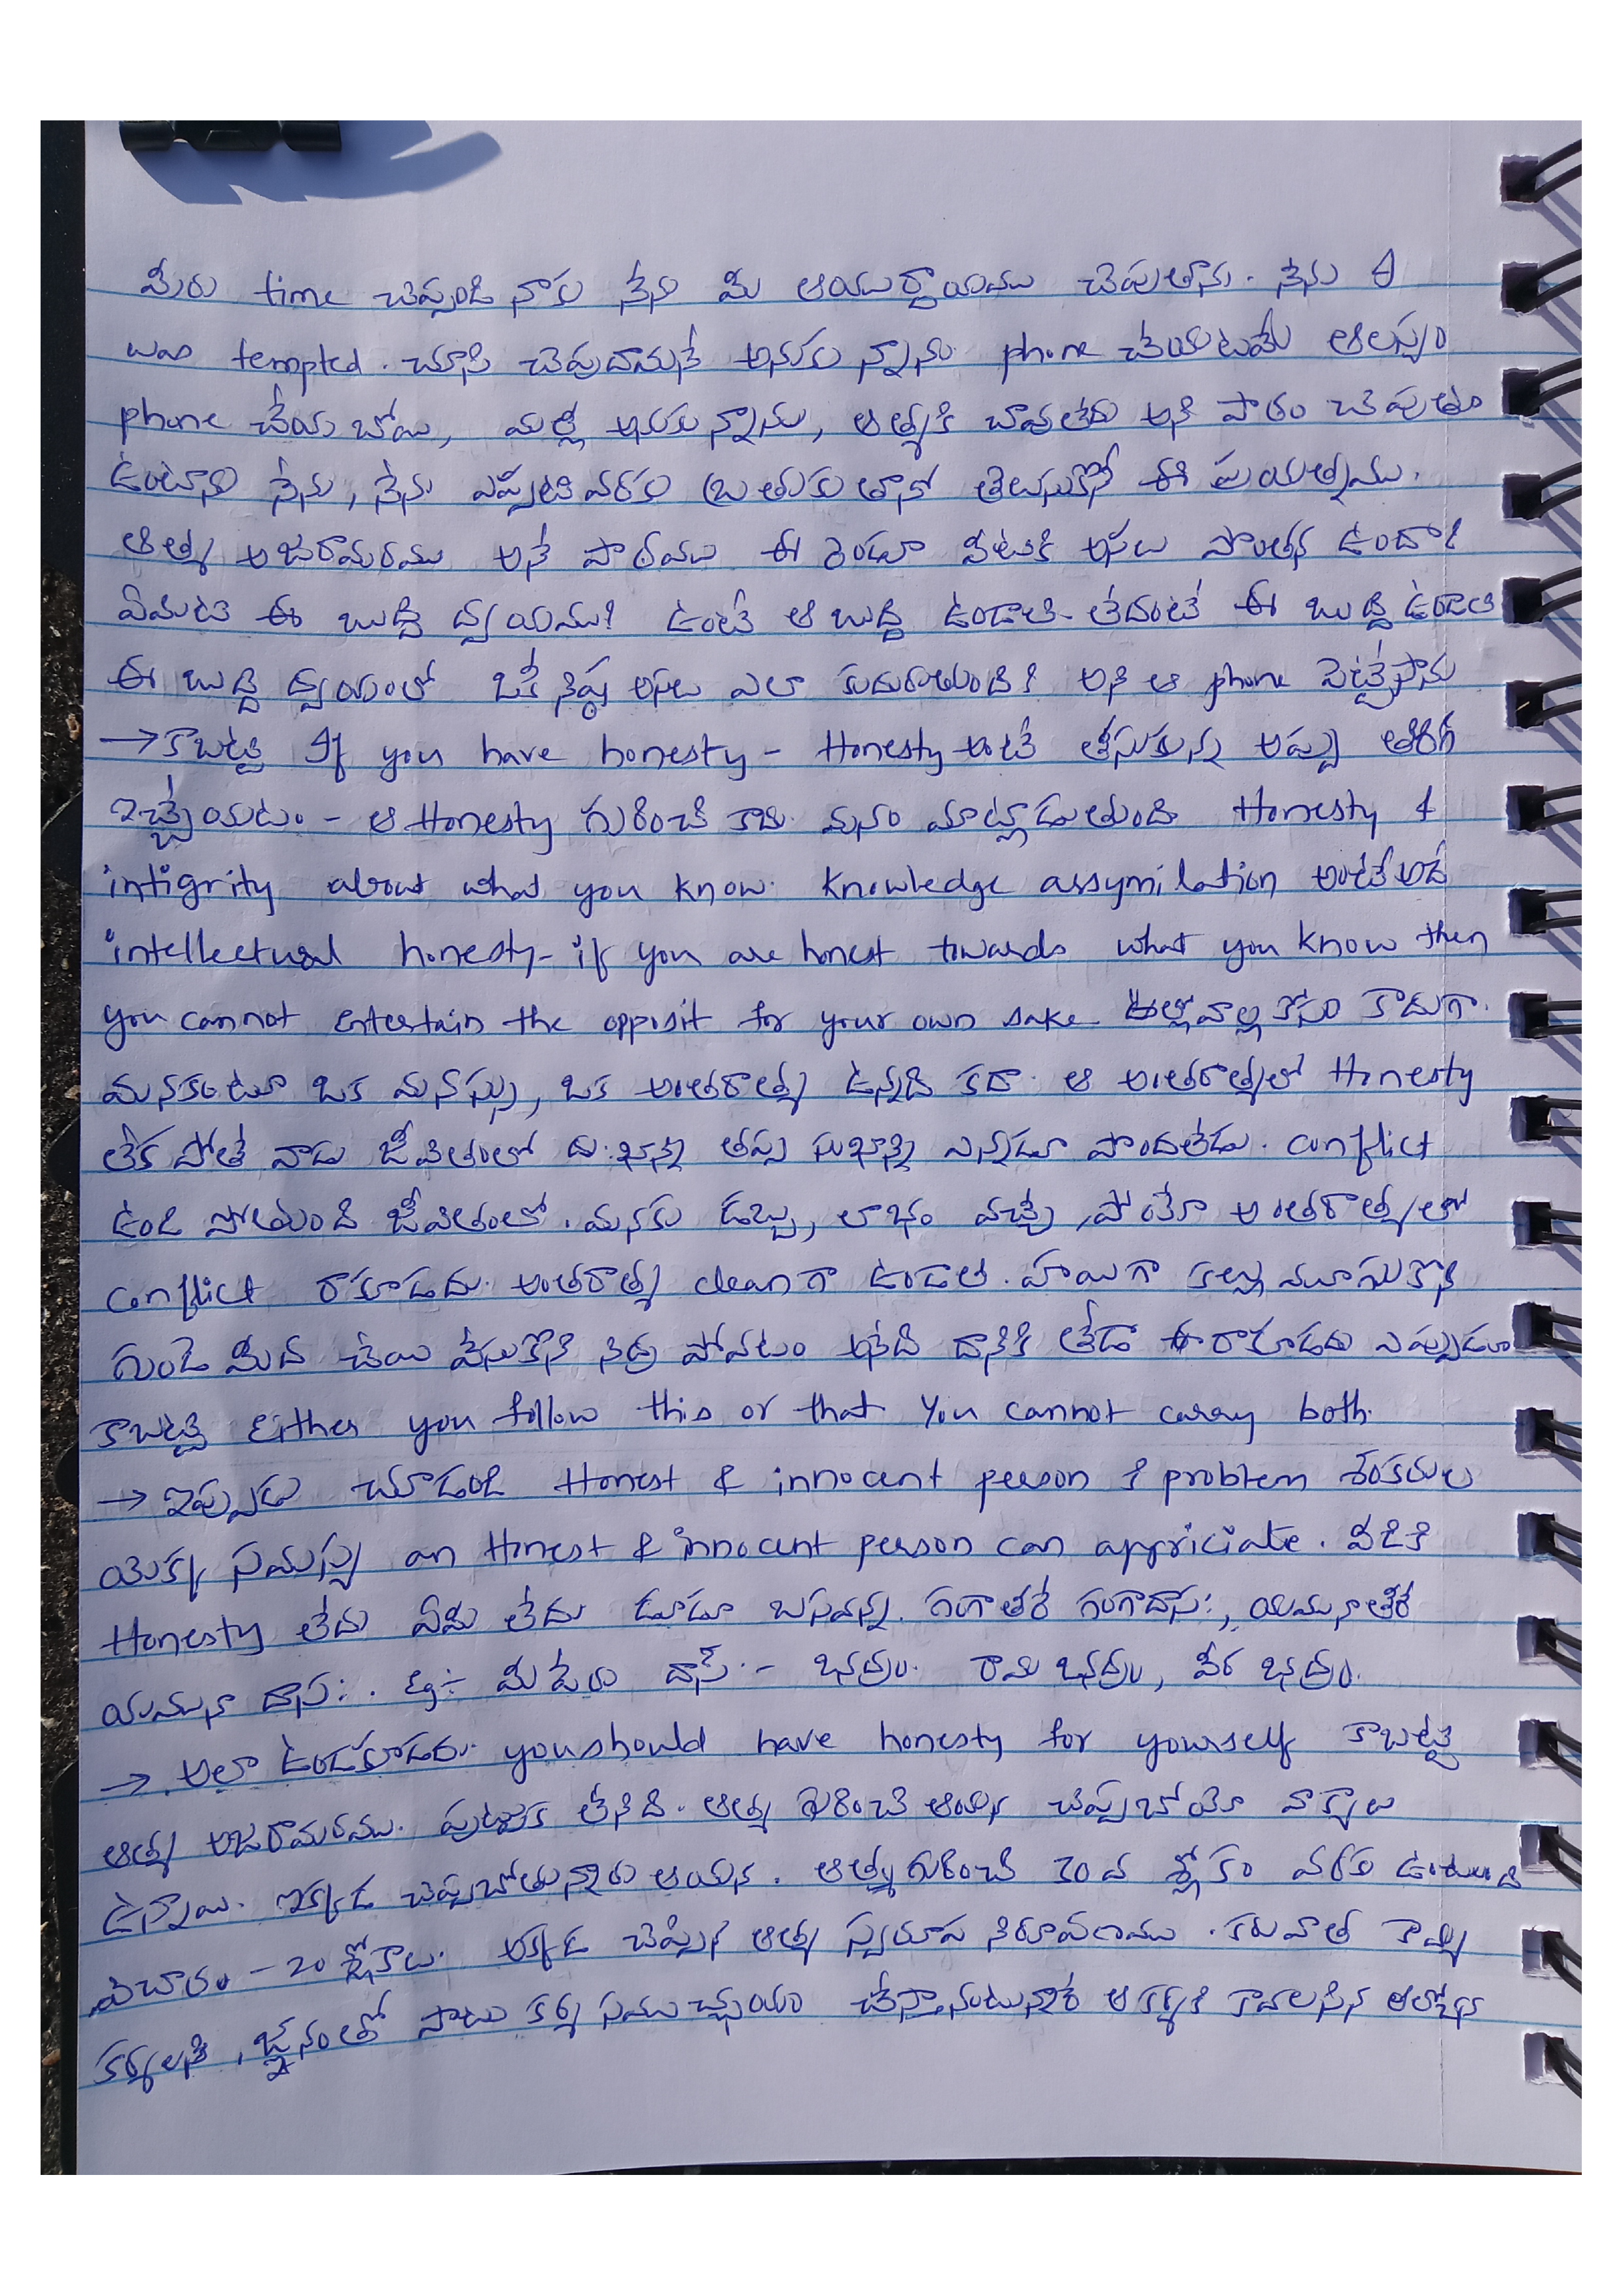 మీరు time చెప్పండి నాకు నేను మీ ఆయుర్దాయము చెపుతాను. నేను I
was tempted. చూసి చెపుదామనే అనుకున్నాను phone చేయటమే ఆలస్యం
phone చేయబోయి, మళ్లీ అనుకున్నాను, ఆత్మకి చావులేదు అని పాఠం చెపుతూ
ఉంటాను నేను, నేను ఎప్పటివరకు బ్రతుకుతానో తెలుసుకొనే ఈ ప్రయత్నము.
ఆత్మ అజరామరము అనే పాఠము ఈ రెండూ వీటికి అసలు పొంతన ఉందా?
ఏమిటి ఈ బుద్ధి ద్వయము? ఉంటే ఆ బుద్ధి ఉండాలి- లేదంటే ఈ బుద్ధి ఉండాలి
ఈ బుద్ధి ద్వయంలో ఒకే నిష్ఠ అసలు ఎలా కుదురుతుంది? అని ఆ phone పెట్టేసాను
→ కాబట్టి If you have honesty - Honesty అంటే తీసుకున్న అప్పు తిరిగి
ఇచ్చేయటం - ఆ Honesty గురించి కాదు. మనం మాట్లాడుతుంది Honesty &
intigrity about what you know. Knowledge assymilation అంటే అదే
intellectual honesty- if you are honest towards what you know then
you cannot entertain the opposit for your own sake. వాళ్ల కోసం కాదుగా.
మనకంటూ ఒక మనస్సు, ఒక అంతరాత్మ ఉన్నది కదా. ఆ అంతరాత్మలో Honesty
లేక పోతే వాడు జీవితంలో దు:ఖాన్ని తప్ప సుఖాన్ని ఎన్నడూ పొందలేడు. conflict
ఉండి పోతుంది జీవితంలో. మనకు డబ్బు, లాభం వచ్చే, పోయే అంతరాత్మలో
conflict రాకూడదు. అంతరాత్మ clean గా ఉండాలి. హాయిగా కళ్లు మూసుకొని
గుండె మీద చేయి వేసుకొని నిద్ర పోవటం అనేది దానికి తేడా రాకూడదు ఎప్పుడూ
కాబట్టి Either you follow this or that. You cannot carry both.
→ ఇప్పుడు చూడండి Honest & innocent person & problem శంకరుల
యొక్క సమస్య an Honest & innocent person can appriciate. వీడికి
Honesty లేదు ఏమి లేదు డూడూ బసవన్న. గంగాతీరే గంగాదాస:, యమునాతీరే
యమునా దాస:. Eg:- మీ పేరు దాస్ :- భద్రం. రామ భద్రం, వీర భద్రం.
→ అలా ఉండకూడదు. you should have honesty for yourself కాబట్టి
ఆత్మ అజరామరము. పుట్టుక లేనిది. ఆత్మ గురించి ఆయన చెప్పబోయే వాక్యాలు
ఉన్నాయి. ఇక్కడ చెప్పబోతున్నారు ఆయన. ఆత్మ గురించి 30 వ శ్లోకం వరకు ఉంటుంది
విచారం - 20 శ్లోకాలు. అక్కడ చెప్పిన ఆత్మ స్వరూప నిరూపణము. తరువాత కామ్య
కర్మలకి, జ్ఞానంతో పాటు కర్మ సముచ్చయం చేస్తానంటున్నారే ఆ కర్మకి కావలసిన ఆలోచన